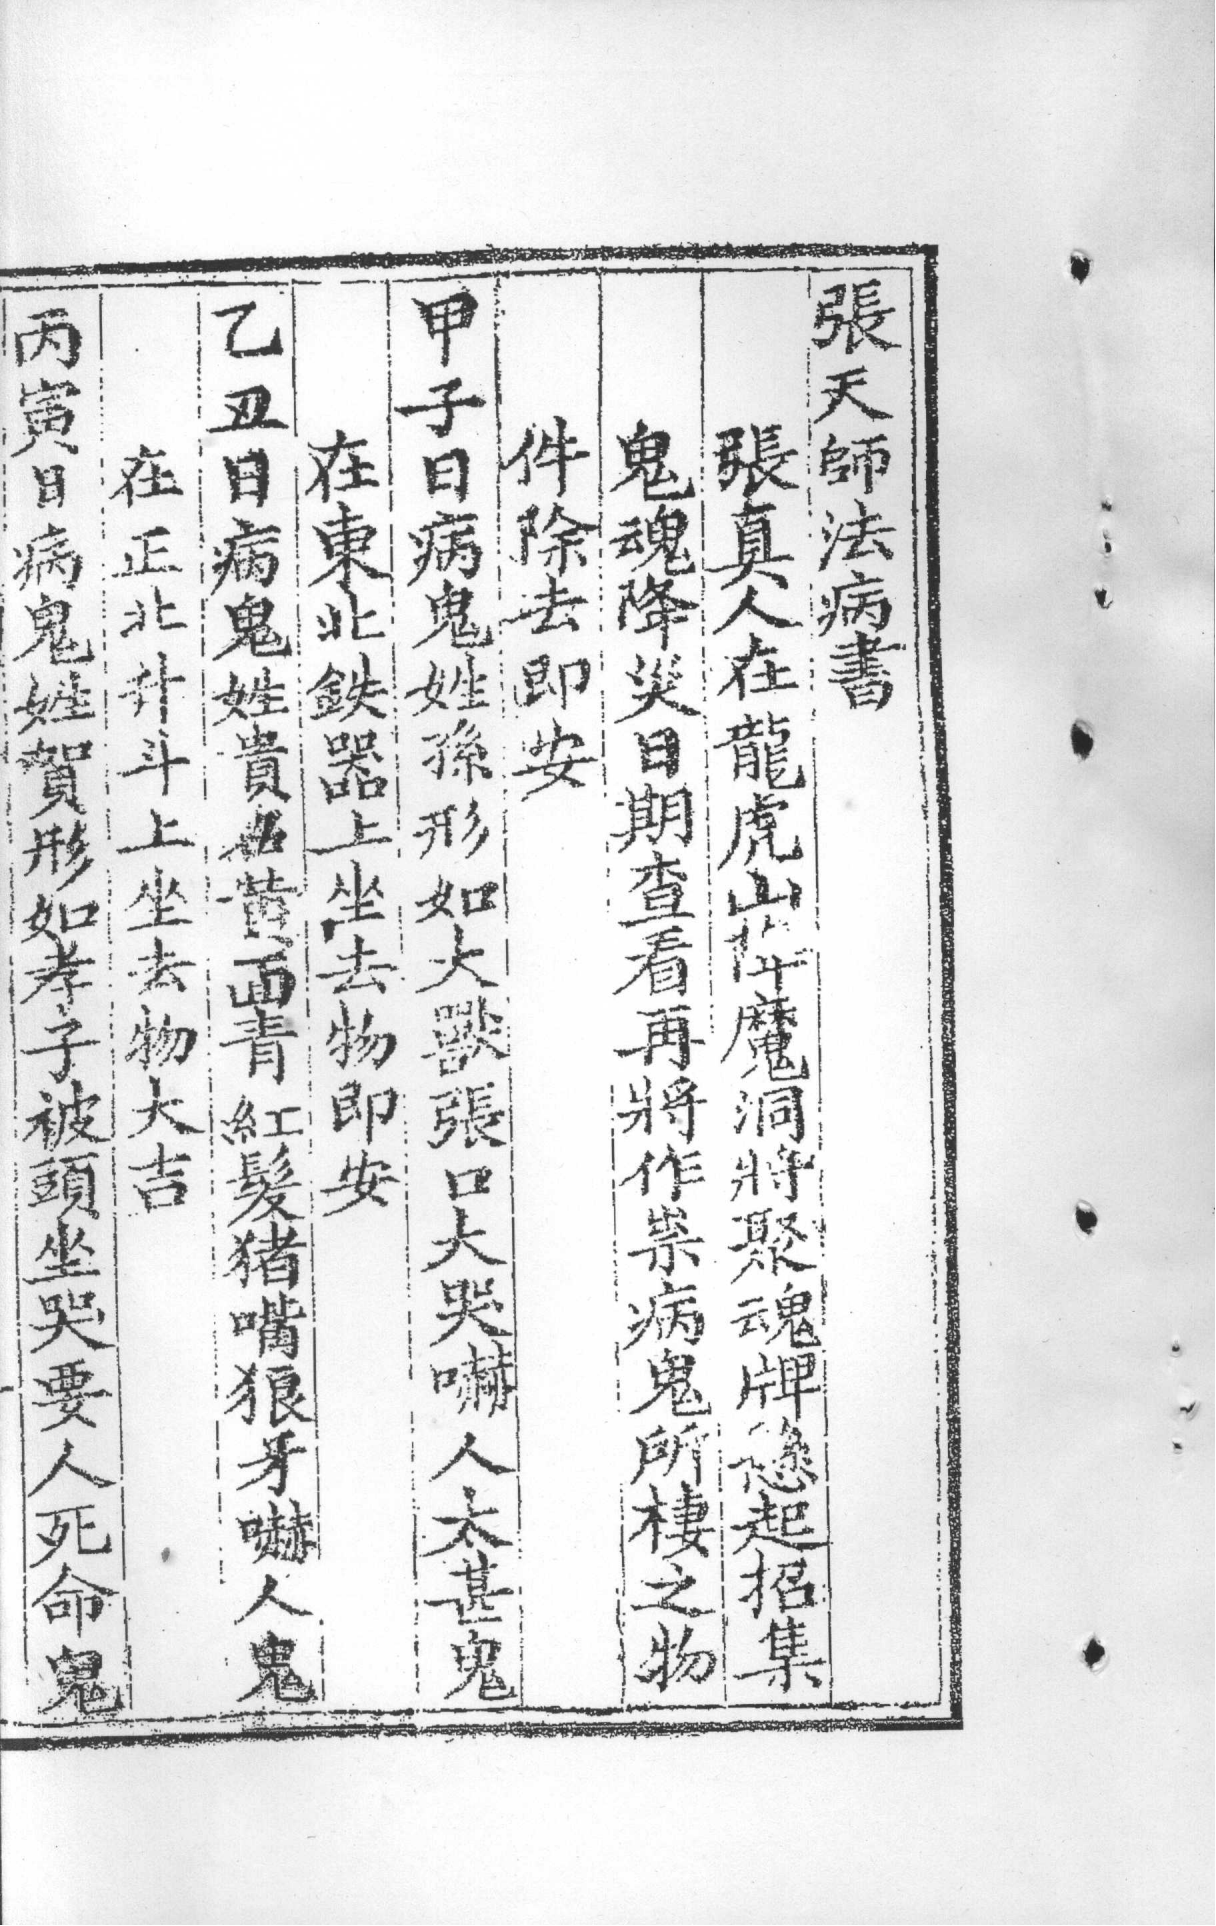 張天師法病書
張真人在龍虎山降魔洞將聚魂牌懸起招集
鬼魂降災日期查看再將作祟病鬼所棲之物
件除去即安
甲子日病鬼姓孫形如大獸張口大哭嚇人太甚鬼
在東北鉄器上坐去物即安
乙丑日病鬼姓貴名黃面青紅髮猪嘴狼牙嚇人鬼
在正北升斗上坐去物大吉
丙寅日病鬼姓賀形如孝子被頭坐哭要人死命鬼